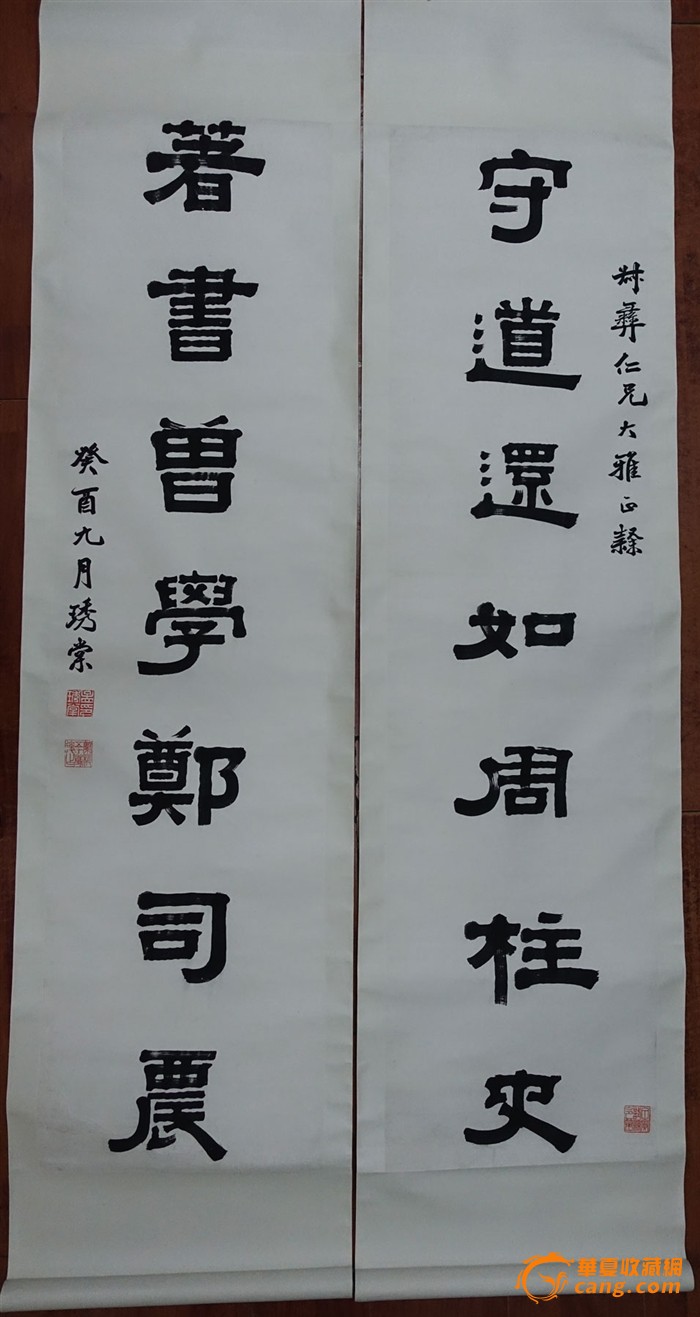 叔彝仁兄大雅正隸
守道還如周柱史
著書曾學鄭司農
癸酉九月琇棠
華夏收藏網
cang.com